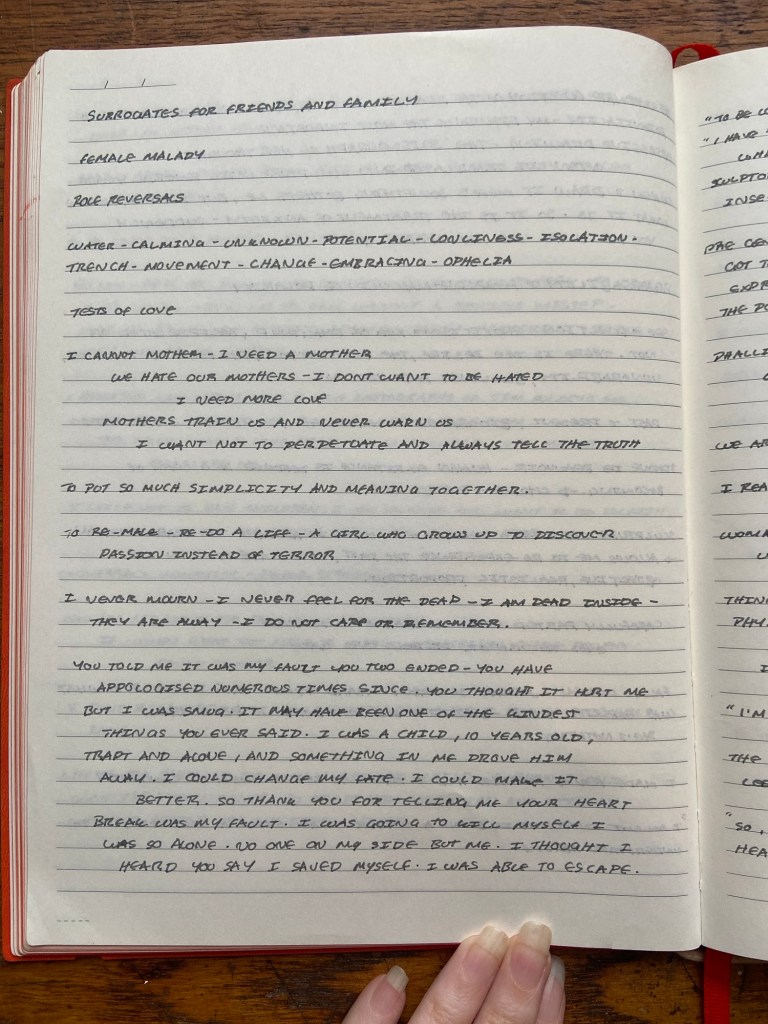 SURROGATES FOR FRIENDS AND FAMILY
FEMALE MALADY
ROLE REVERSALS
WATER - CALMING - UNKNOWN - POTENTIAL - LONLINESS - ISOLATION.
TRENCH - MOVEMENT - CHANGE - EMBRACING - OPHELIA
TESTS OF LOVE
I CANNOT MOTHER - I NEED A MOTHER
WE HATE OUR MOTHERS - I DONT WANT TO BE HATED
I NEED MORE LOVE
MOTHERS TRAIN US AND NEVER WARN US
I WANT NOT TO PERPETUATE AND ALWAYS TELL THE TRUTH
TO PUT SO MUCH SIMPLICITY AND MEANING TOGETHER.
TO RE-MALE - RE-DO A LIFE - A GIRL WHO GROWS UP TO DISCOVER
PASSION INSTEAD OF TERROR
I NEVER MOURN - I NEVER FEEL FOR THE DEAD - I AM DEAD INSIDE -
THEY ARE AWAY - I DO NOT CARE OR REMEMBER.
YOU TOLD ME IT WAS MY FAULT YOU TWO ENDED - YOU HAVE
APPOLOGISED NUMEROUS TIMES SINCE. YOU THOUGHT IT HURT ME
BUT I WAS SMUG. IT MAY HAVE BEEN ONE OF THE KINDEST
THINGS YOU EVER SAID. I WAS A CHILD, 10 YEARS OLD,
TRAPT AND ALONE, AND SOMETHING IN ME DROVE HIM
AWAY. I COULD CHANGE MY FATE. I COULD MAKE IT
BETTER. SO THANK YOU FOR TELLING ME YOUR HEART
BREAK WAS MY FAULT. I WAS GOING TO KILL MYSELF I
WAS SO ALONE. NO ONE ON MY SIDE BUT ME. I THOUGHT I
HEARD YOU SAY I SAVED MYSELF. I WAS ABLE TO ESCAPE.
"TO BE
"I HAVE
INSE
GOT T
EXP
THE PO
PHALLI
WE AR
I REA
THIN
PHY
I
"I'M
THE
LEE
"SO,
HEA